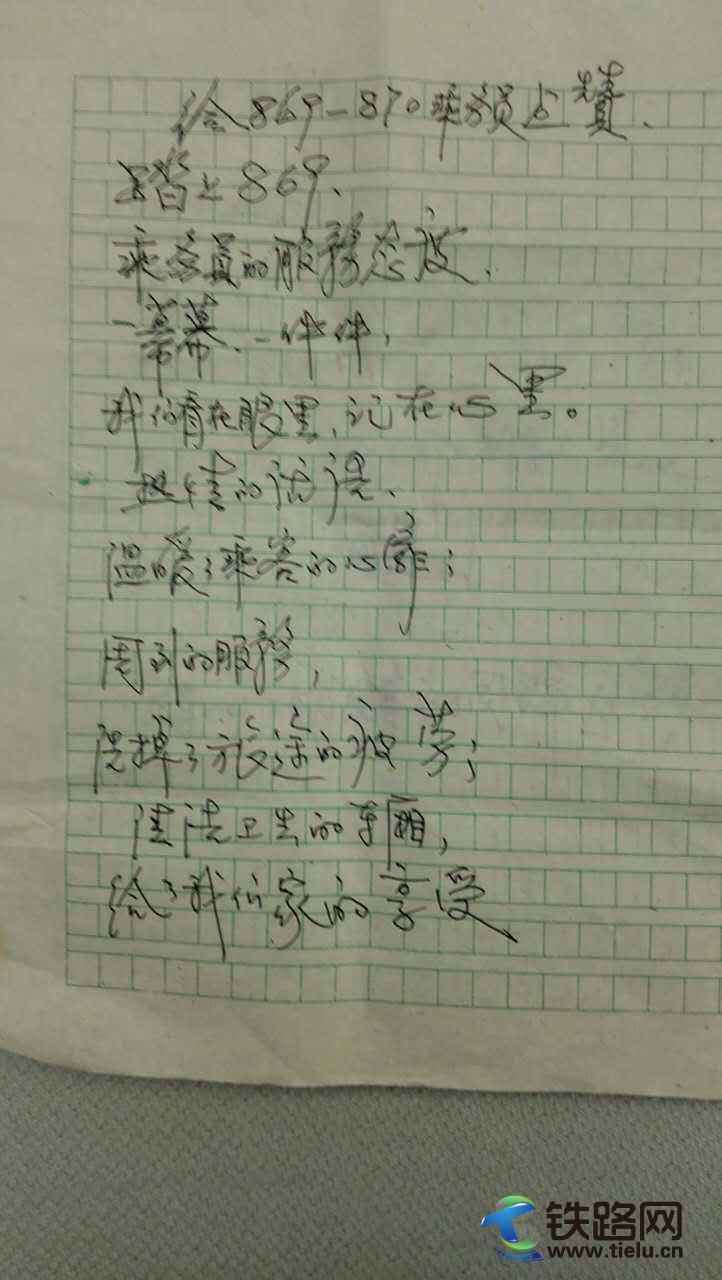 给869-870乘务员点赞、
踏上869、
乘务员的服务态度、
一幕幕、一件件,
我们看在眼里,记在心里。
热情的话语、
温暖了乘客的心扉;
周到的服务,
洗掉了旅途的疲劳;
清洁卫生的车厢,
给了我们家的享受、
铁路网
www.tielu.cn